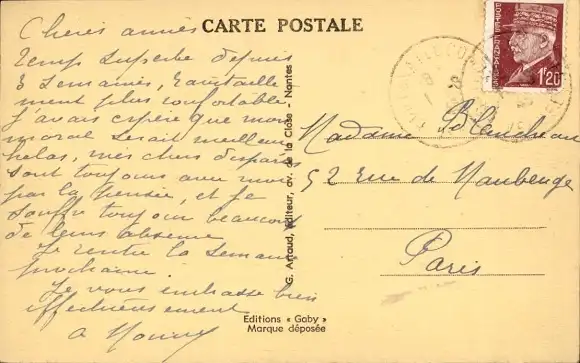 CARTE POSTALE
Chères amies
Temps superbe depuis
3 semaines, ravitaille-
ment plus confortable
J'avais espéré que mon
moral serait meilleur
hélas, mes chers disparus
sont toujours avec moi
par la pensée, et je
souffre toujour beaucoup
de leurs absence
Je rentre la semaine
prochaine.
Je vous embrasse bien
affectueusement
G. Artaud, Editeur, av. de la Close - Nantes
Editions « Gaby »
Marque déposée
POSTES FRANÇAISES
1F20
Madame
52 rue de Maubeuge
Paris